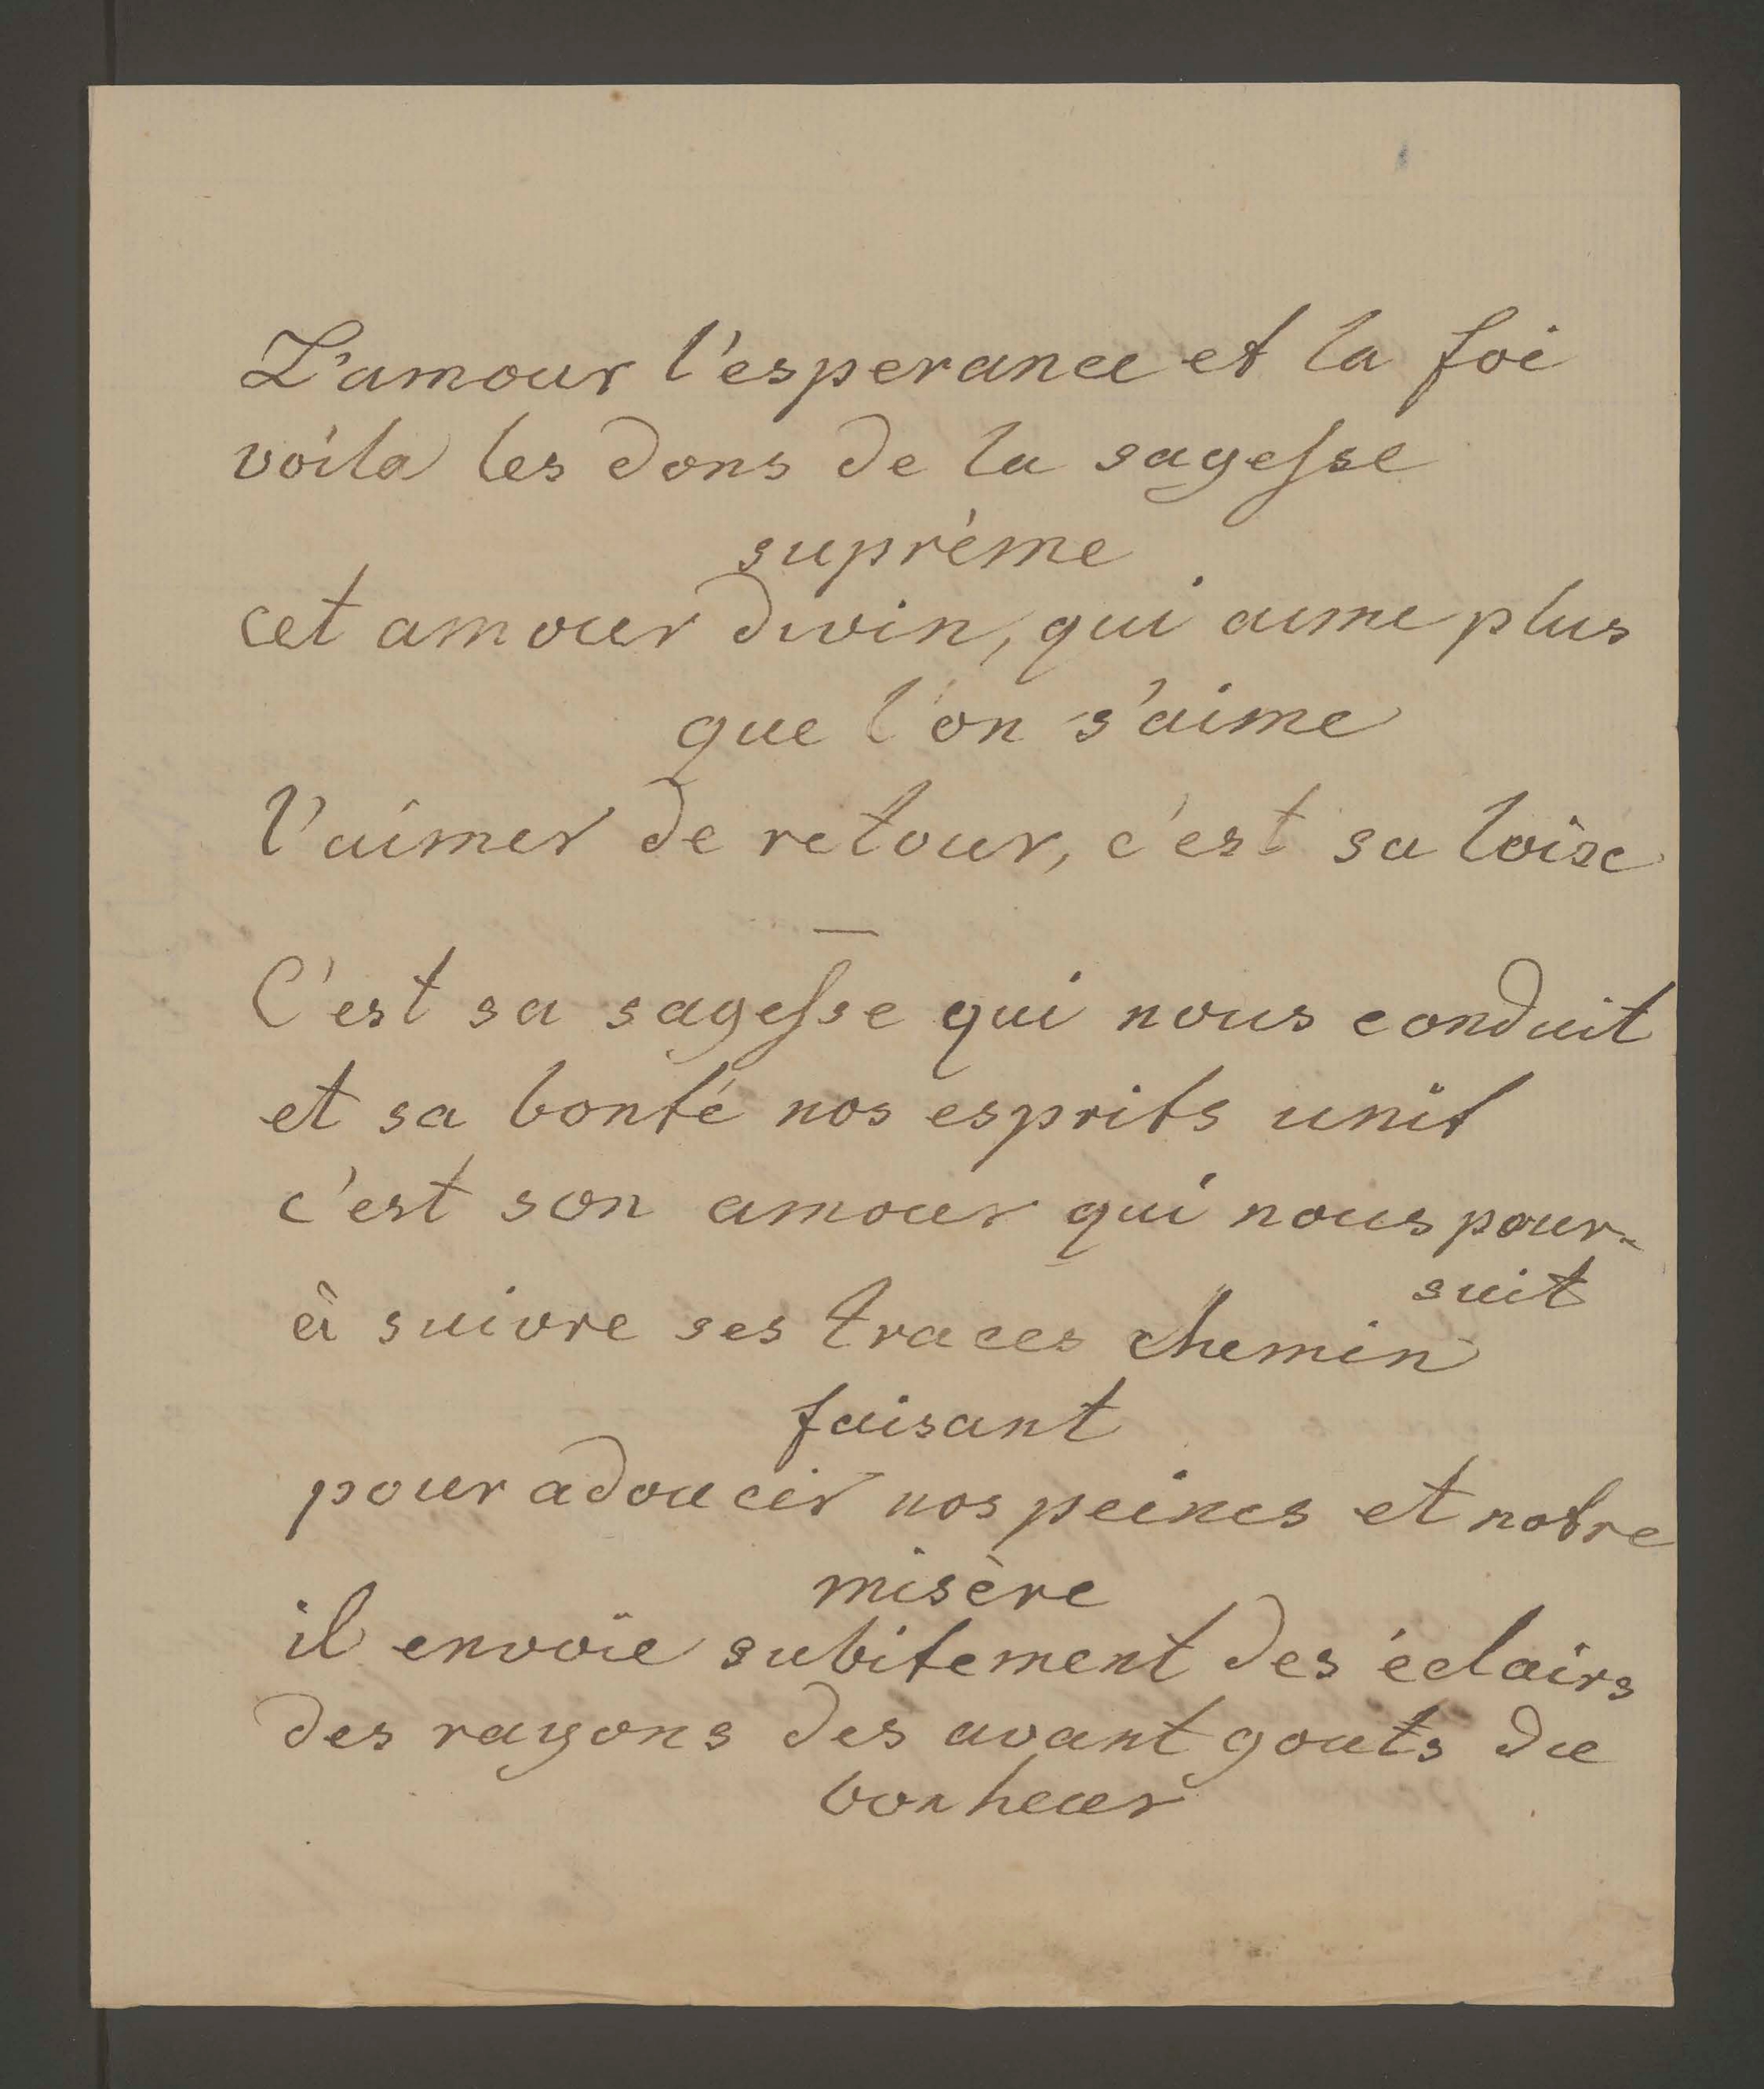 L'amour l'esperance et la foi
voila les dons de la sagesse
suprème
cet amour divin, qui aime plus
que l'on s'aime
l'aimer de retour, c'est sa loise
—
C'est sa sagesse qui nous conduit
et sa bonté nos esprits unit
c'est son amour qui nous pour-
suit
à suivre ses traces chemin
faisant
pour adoucir nos peines et notre
misère
il envoie subitement des éclairs
des rayons des avant gouts du
bonheur